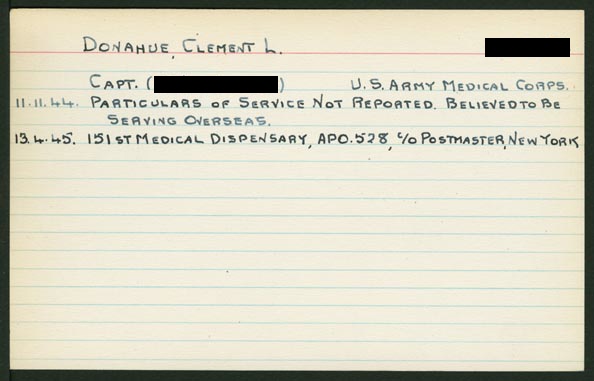 DONAHUE, CLEMENT L.
CAPT. ( ) U.S. ARMY MEDICAL CORPS.
11.11.44. PARTICULARS OF SERVICE NOT REPORTED. BELIEVED TO BE
SERVING OVERSEAS.
13.4.45. 151ST MEDICAL DISPENSARY, APO.528, C/O POSTMASTER, NEW YORK